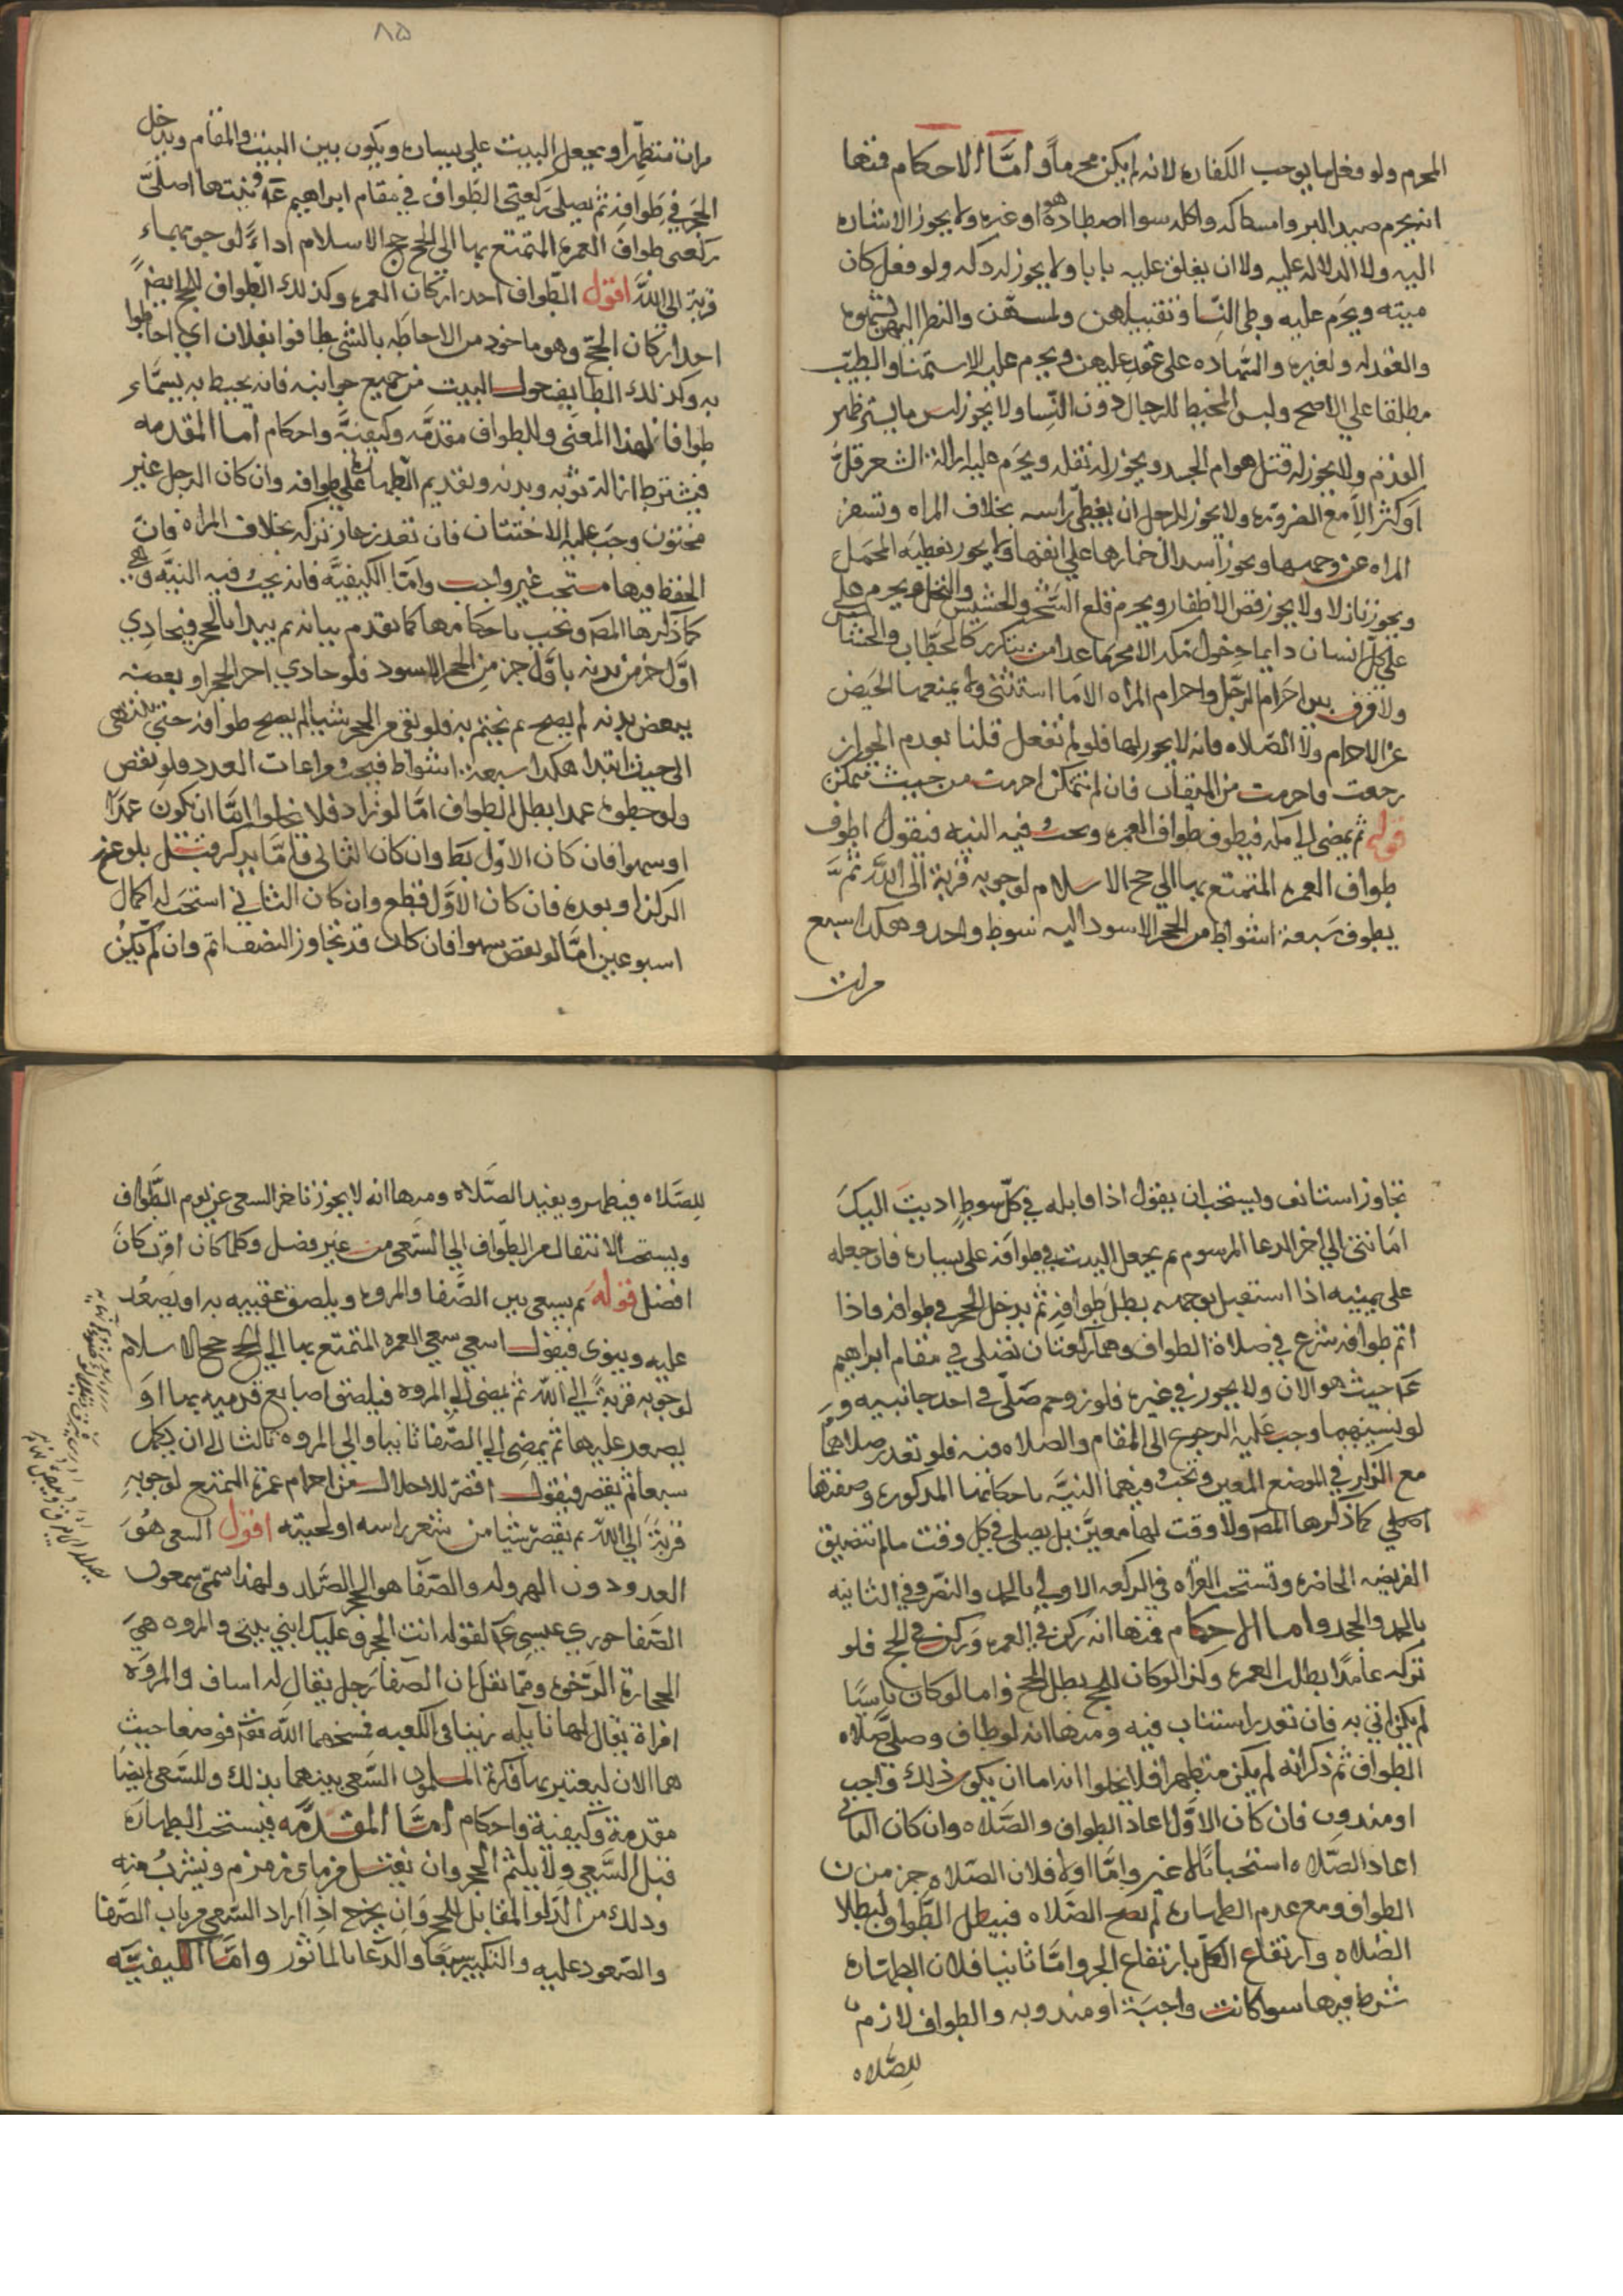 المحرم ولو فعل ما يوجب الكفاره لانه لم يكن محرماً واما الاحكام فمنها
انه يحرم صيد البر وامساكه واكله سوا اصطاده هو او غيره ولا يجوز الاشاره
اليه ولا الدلاله عليه ولا ان يغلق عليه بابا ولا يجوز له ذكه ولو فعل كان
ميته ويحرم عليه وطى النسا وتقبيلهن ولمسهن والنظر اليهن بشهوه
والعقد له ولغيره والشهاده على عقد عليهن ويحرم عليه الاستمنا والطيب
مطلقا على الاصح ولبس المخيط للرجال دون النسا ولا يجوز لبس ما يستر ظهر
القدم ولا يجوز له قتل هوام الجسد ويجوز له نقله ويحرم عليه ازالة الشعر قلّ
او كثر الا مع الضروره ولا يجوز للرجل ان يغطى راسه بخلاف المراه وتسفر
المراه عن وجهها ويجوز اسدال خمارها على انفها ولا يجوز تغطيه المحمل
ويجوز نازلا ولا يجوز قص الاظفار ويحرم قلع الشجر والحشيش والنخل ويحرم على
على كل انسان دايما دخول مكه الا محرما عدا من يتكرر كالحطاب والحشاش
ولا فرق بين احرام الرجل واحرام المراه الا ما استثنى ولا يمنعها الحيض
عن الاحرام ولا الصلاه فانه لا يجوز لها فلو لم تفعل قلنا بعدم الجواز
رجعت واحرمت من الميقات فان لم تتمكن احرمت من حيث تمكن
قوله ثم يمضى الى مكه فيطوف طواف العمره ويجب فيه النيه فيقول اطوف
طواف العمره المتمتع بها الى حج الاسلام لوجوبه قربة الى الله ثم
يطوف سبعة اشواط من الحجر الاسود اليه شوط واحد وهكذا سبع
مرات
٨٥
مرات متطهرا ويجعل البيت على يساره ويكون بين البيت والمقام ويدخل
الحجر في طوافه ثم يصلى ركعتى الطواف في مقام ابراهيم عه ونيتها اصلى
ركعتى طواف العمره المتمتع بها الى الحج حج الاسلام اداءً لوجوبهماء
قربة الى الله اقول الطواف احد اركان العمره وكذلك الطواف للحج ايضً
احد اركان الحج وهو ماخوذ من الاحاطه بالشى طافوا بفلان اي احاطوا
به وكذلك الطايف حول البيت من جميع جوانبه فانه يحيط به يسمّاء
طوافا لهذا المعنى وللطواف مقدمه وكيفيه واحكام اما المقدمه
فيشترط ازالة ثوبه وبدنه وتقديم الطهاره على طوافه وان كان الرجل غير
مختون وجب عليه الاختتان فان تعذر جاز تركه بخلاف المراه فان
الخفظ فيها مستحب غير واجب واما الكيفيه فانه يجب فيه النيه وهى
كما ذكرها المص وتجب باحكامها كما تقدم بيانه ثم يبدا بالحجر فيحاذي
اوّل جز من بدنه باوّل جز من الحجر الاسود فلو حاذي اخر الحجر او بعضه
ببعض بدنه لم يصح ثم يختم به فلو بقى من الحجر شيا لم يصح طوافه حتى ينتهى
الى حيث ابتدا هكذا سبعة اشواط فيجب مراعات العدد فلو نقص
ولو خطوه عمدا بطل الطواف اما لو زاد فلا يخلوا امّا ان يكون عمدا
او سهوا فان كان الاوّل بط وان كان الثانى فامّا يذكر قبل بلوغه
الركن او بعده فان كان الاوّل قطع وان كان الثاني استحب له اكمال
اسبوعين امّا لو نقص سهوا فان كان قد تجاوز النصف اتم وان لم يكن
تجاوز استانف ويستحب ان يقول اذا قابله في كلّ شوط اديت اليك
امانتى الى اخر الدعا المرسوم ثم يجعل البيت في طوافه على يساره فان جعله
على يمينه اذا استقبل بوجهه بطل طوافه ثم يدخل الحجر في طوافه فاذا
اتم طوافه شرع في صلاة الطواف وهما ركعتان تصلى في مقام ابراهيم
عه حيث هو الان ولا يجوز في غيره فلو زوحم صلّى في احد جانبيه و
لو نسيهما وجب عليه الرجوع الى المقام والصلاه فيه فلو تعذر صلاهما
مع الزوار في الموضع المعين وتجب فيهما النيّه باحكامها المذكوره وصفتها
اصلي كما ذكرها المص ولا وقت لها معيّن بل يصلى في كل وقت ما لم يتضيق
الفريضه الحاضره وتستحب القراه في الركعه الاولى بالحمد والنصر وفي الثانيه
بالحمد والجحد واما الاحكام فمنها انه ركن في العمره وركن في الحج فلو
تركه عامدًا بطلت العمره وكذا لو كان للحج بطل الحج واما لو كان ناسيًا
لم يكن اتى به فان تعذر استناب فيه ومنها انه لو طاف وصلى صلاه
الطواف ثم ذكر انه لم يكن متطهرا فلا يخلوا انه اما ان يكون ذلك واجب
او مندوب فان كان الاوّل اعاد الطواف والصلاه وان كان الثانى
اعاد الصلاه استحبابًا لا غير وامّا اولا فلان الصلاه جز من
الطواف ومع عدم الطهاره لم تصح الصلاه فيبطل الطواف لبطلا
الصلاه وارتفاع الكل بارتفاع الجز وامّا ثانيا فلان الطهاره
شرط فيها سوا كانت واجبة او مندوبه والطواف لازم
للصلاه
للصلاه فيطهر ويعيد الصلاه ومنها انه لا يجوز تاخر السعى عن يوم الطواف
ويستحب الانتقال من الطواف الى السعى من غير فصل وكلما كان اقرب كان
افضل قوله ثم يسعى بين الصفا والمروه ويلصق عقبيه به او يصعُد
عليه وينوى فيقول اسعى سعي العمره المتمتع بها الى الحج حج الاسلام
لوجوبه قربةً الى الله ثم يمضى الى المروه فيلصق اصابع قدميه بها او
يصعد عليها ثم يمضى الى الصّفا ثانيا والى المروه ثالثا الى ان يكمل
سبعا ثم يقصر فيقول اقصّر للاحلال من احرام عمرة التمتع لوجوبه
قربة الى الله ثم يقصر شيا من شعر راسه او لحيته اقول السعى هو
العدو دون الهروله والصّفا هو الحجر الصّلد ولهذا سمّى سمعون
الصفا حوري عيسى عه لقوله انت الحجر وعليك ابني بيتى والمروه هي
الحجارة الرّخوه وممّا نقل ان الصّفا رجل يقال له اساف والمروه
امراة يقال لها نايله زنيا في الكعبه فمسخهما الله تع فوضعا حيث
هما الان ليعتبر بها فكره المسلمون السّعى بينهما بذلك وللسّعى ايضا
مقدمة وكيفية واحكام امّا المقدمه فيستحب الطهاره
قبل السّعي ولا يلثم الحجر وان يغتسل من ماى زمزم ويشرب منه
وذلك من الدّلو المقابل للحجر وان يخرج اذا اراد السّعى من باب الصّفا
والصّعود عليه والتكبير سبعا والدّعا بالماثور وامّا الكيفيّه